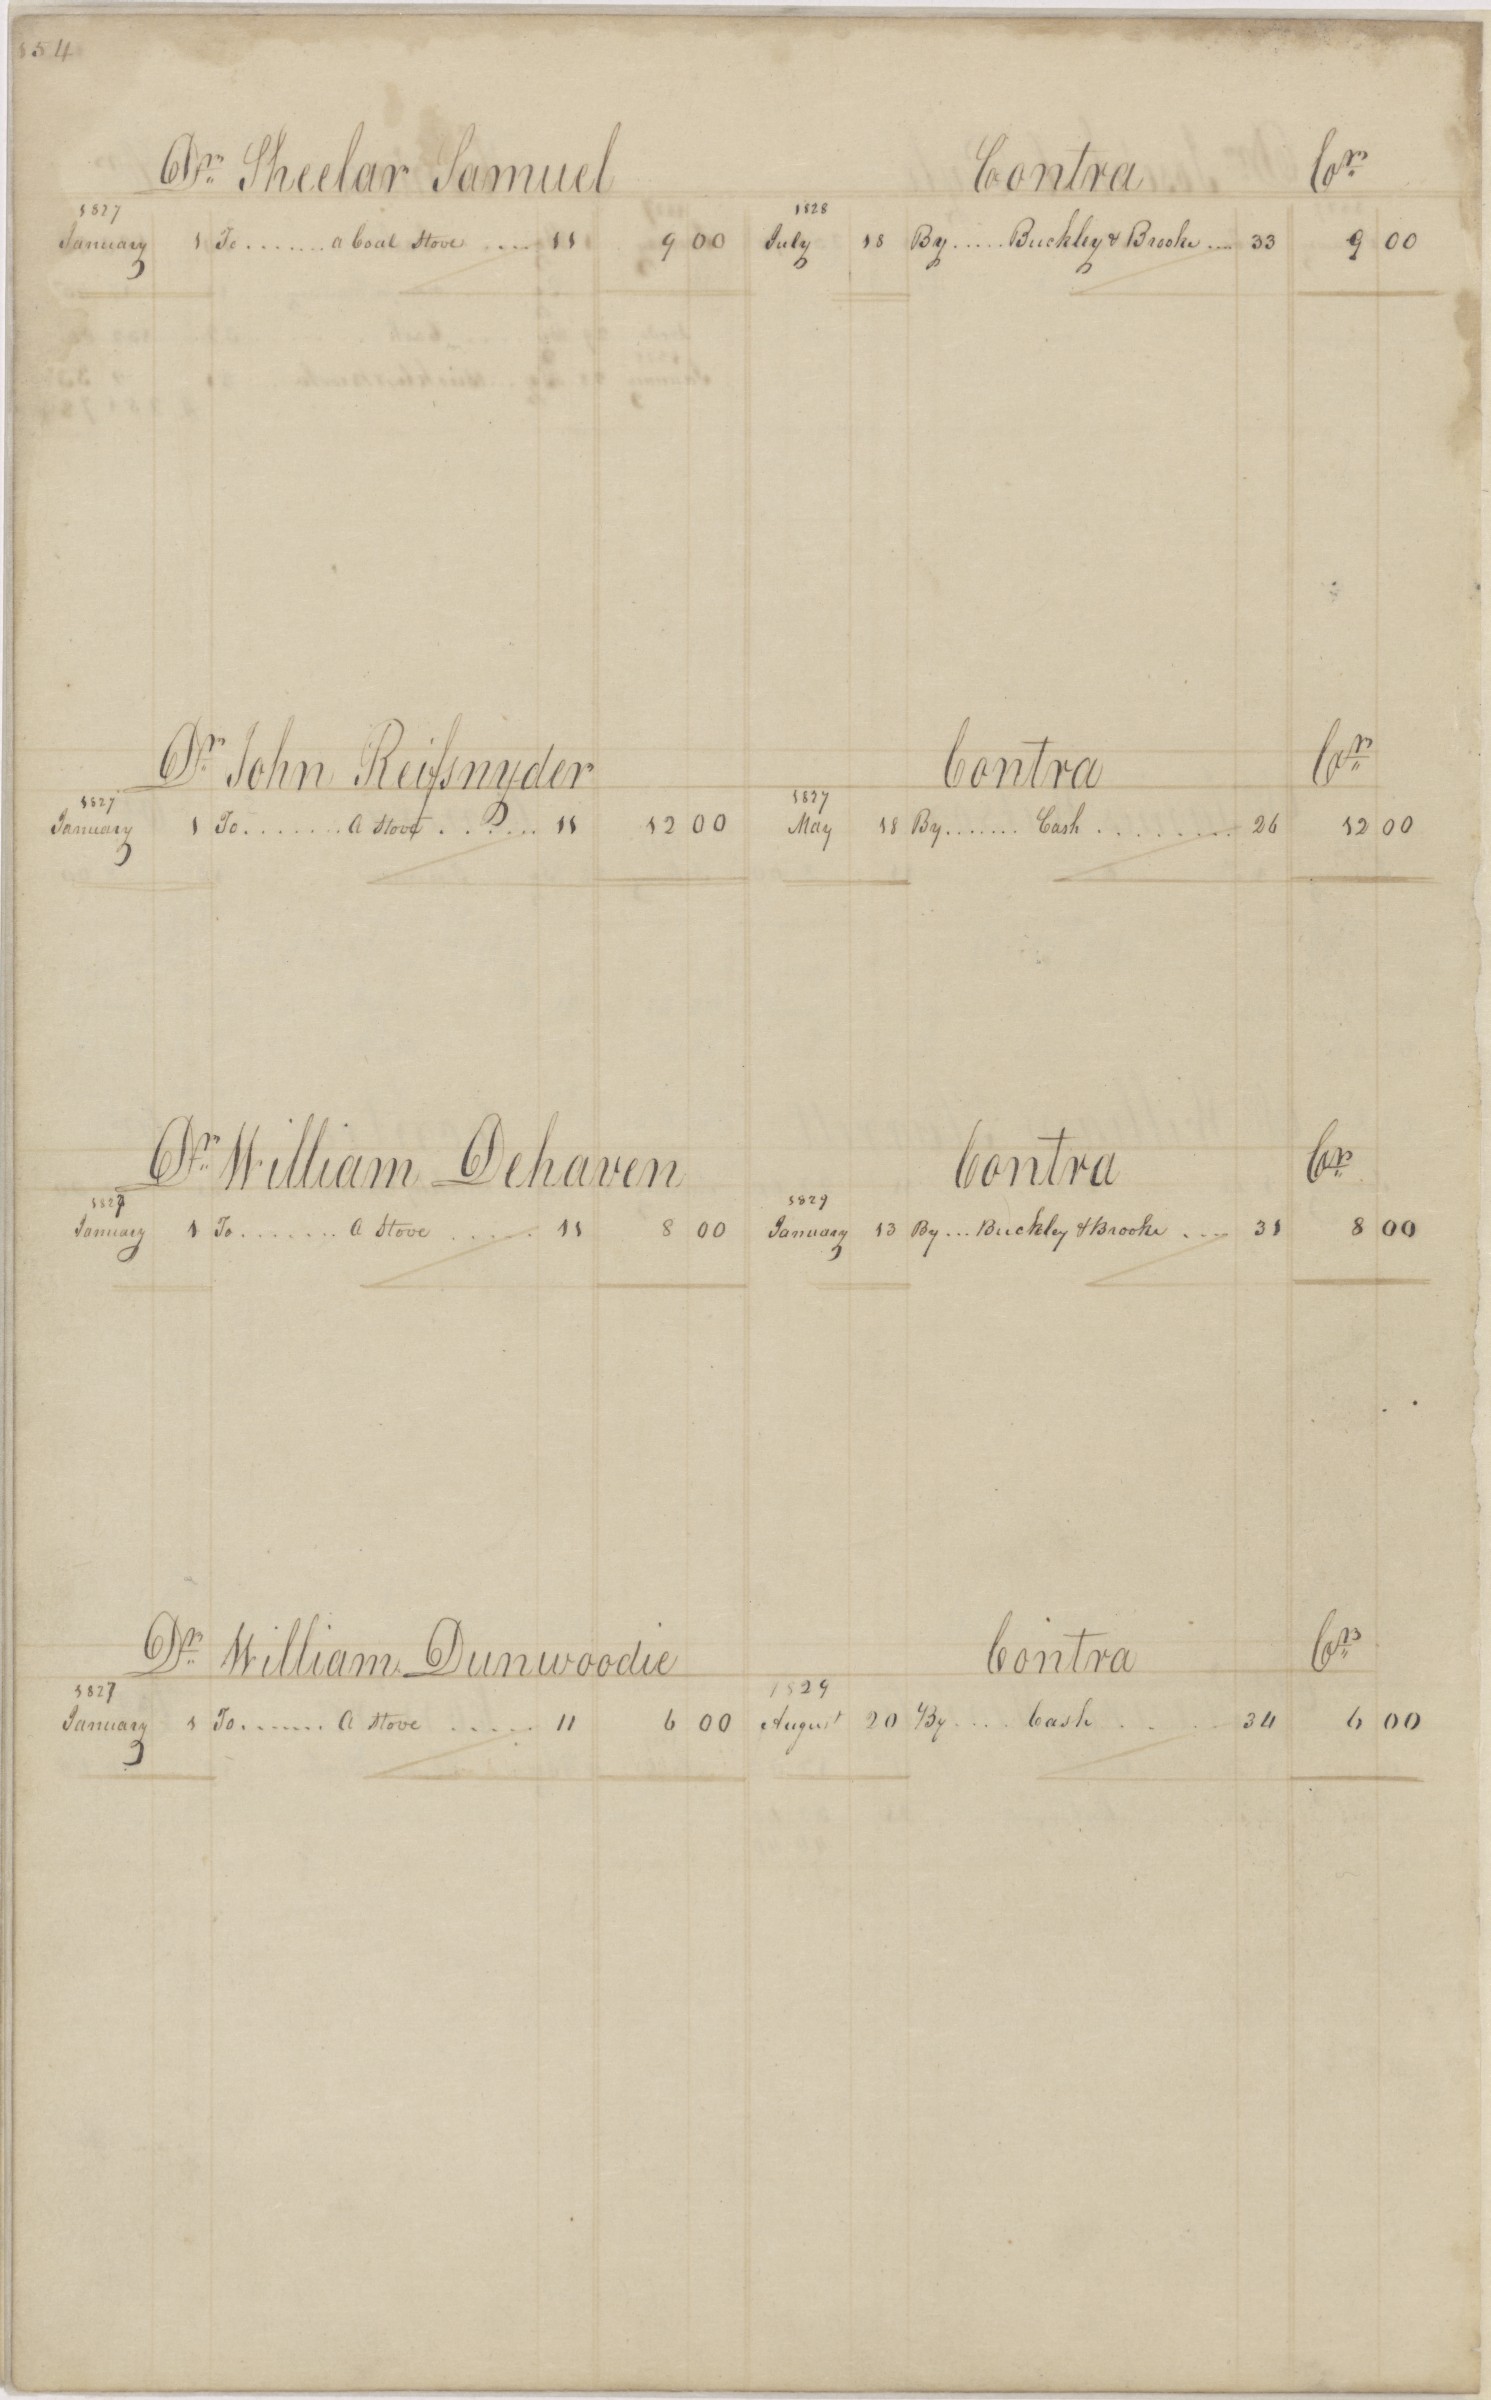 154
Dr. Sheelar Samuel Contra Cor.
1827 1828
January 1 To ....... a Coal Stove .... 11 9 00 July 18 By ..... Buckley & Brooke .... 33 9 00
Dr. John Reifsnyder Contra Cor.
1827 1827
January 1 To ....... A Stove ..... 11 12 00 May 18 By ....... Cash ........ 26 12 00
Dr. William Dehaven Contra Cr.
1827 1829
January 1 To ....... A Stove ..... 11 8 00 January 13 By ... Buckley & Brooke .... 31 8 00
Dr. William Dunwoodie Contra Cor.
1827 1829
January 1 To ....... A Stove ..... 11 6 00 August 20 By .... Cash .... 34 6 00